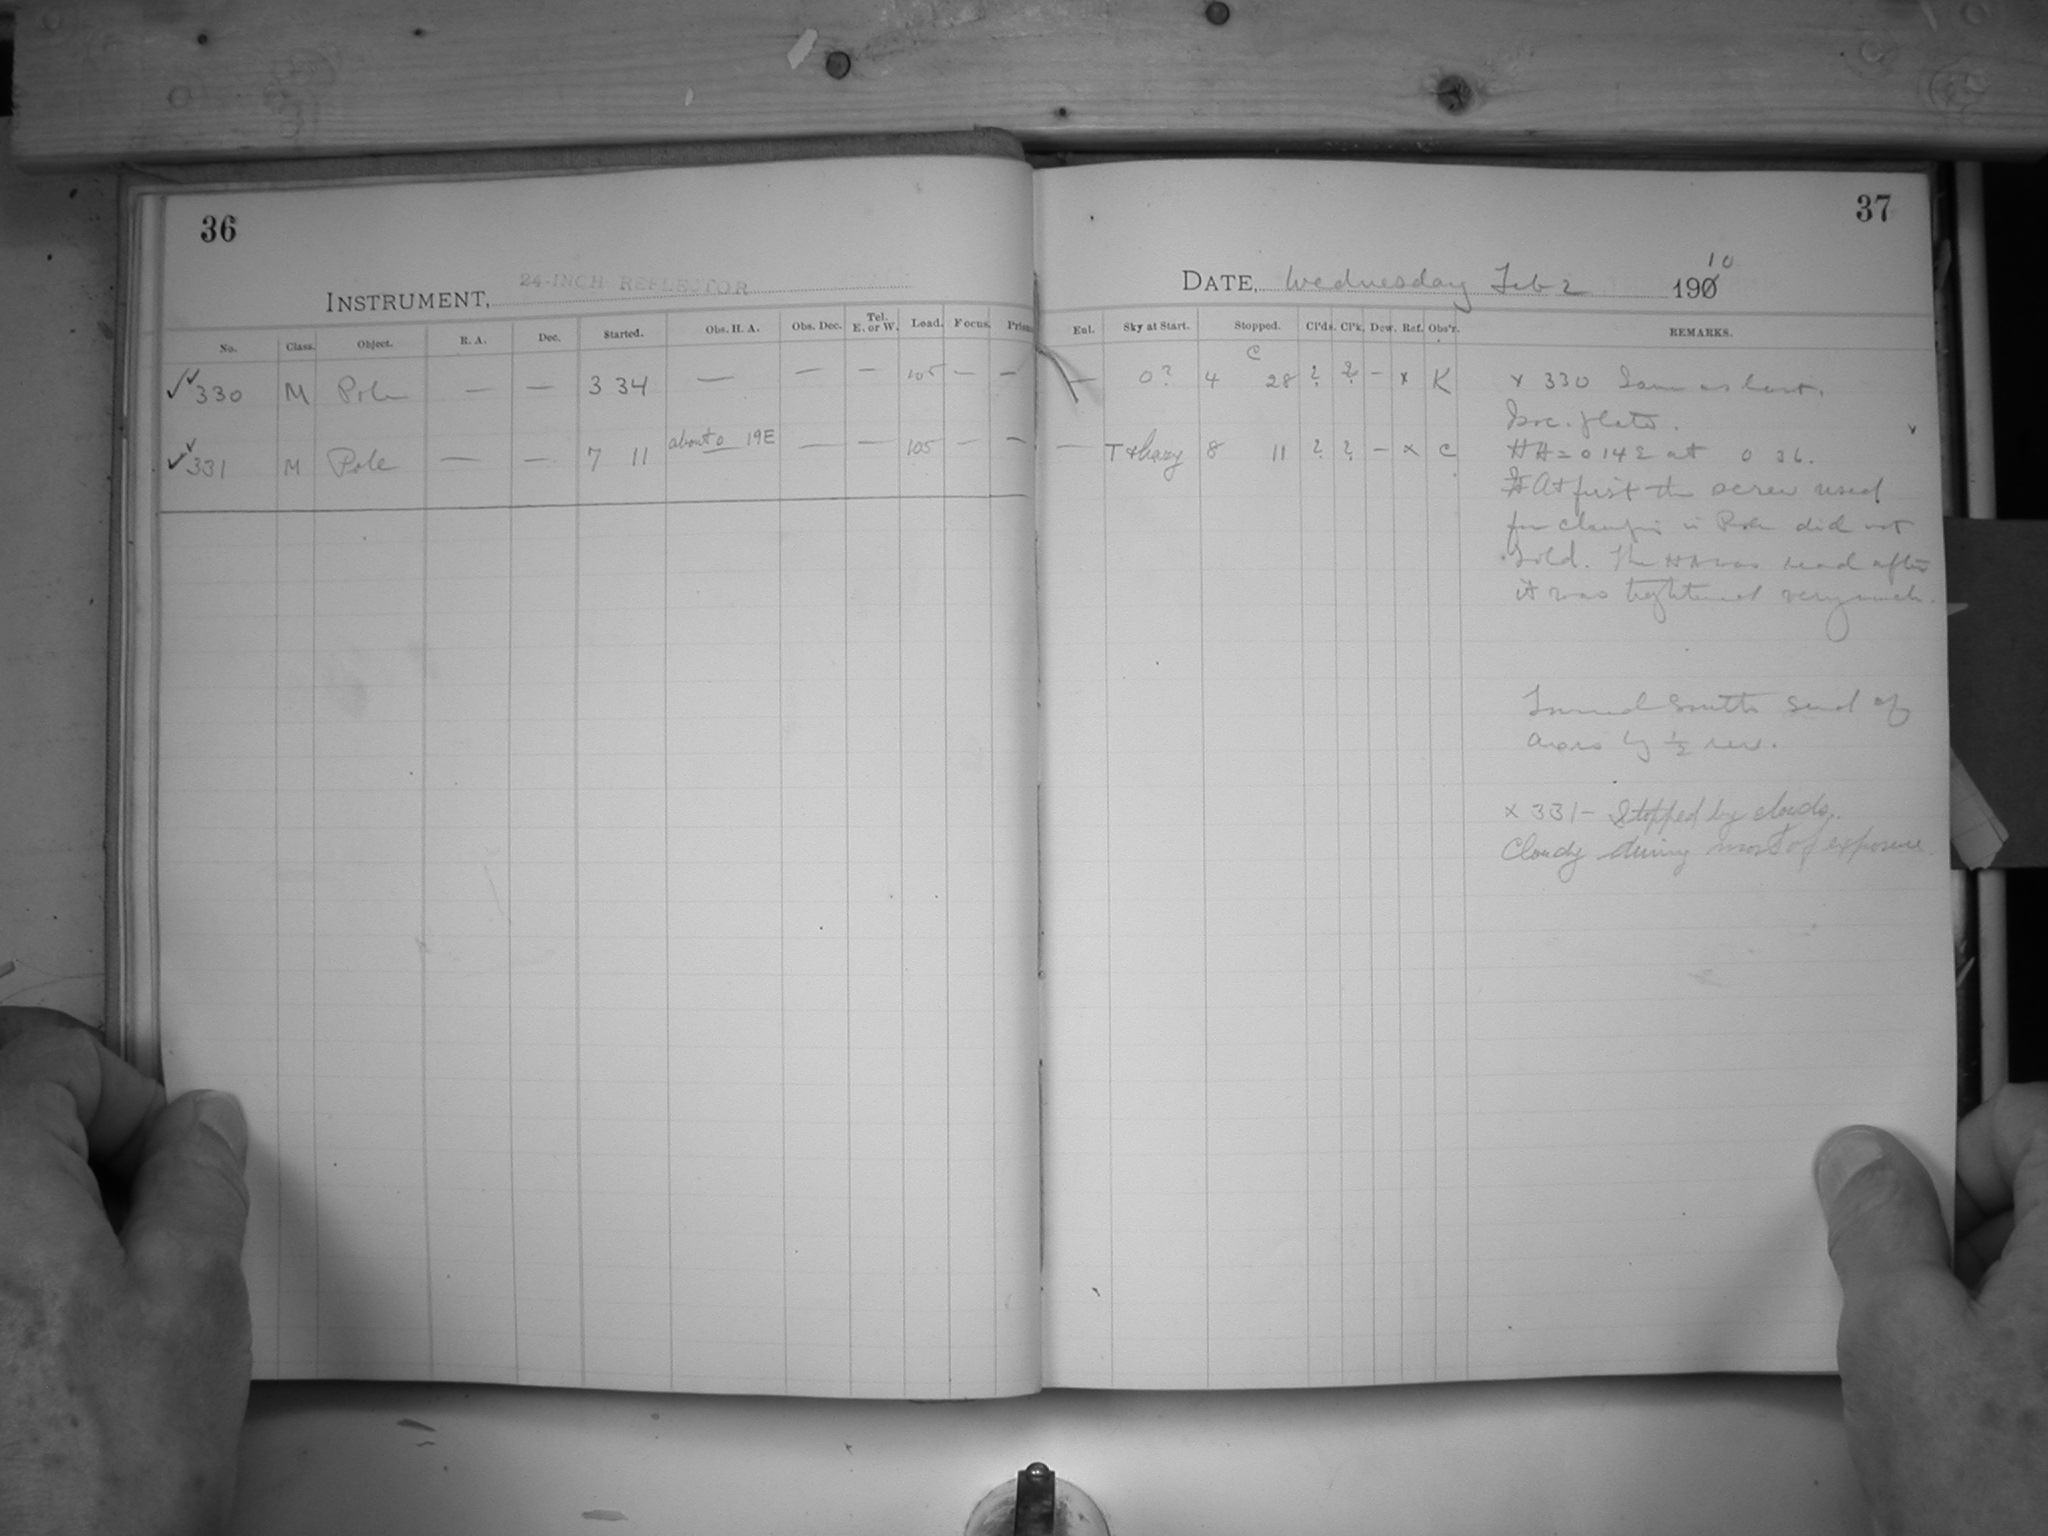 36
INSTRUMENT, 24-INCH REFLECTOR
No. Class. Object. R. A. Dec. Started. Obs. H. A. Obs. Dec. Tel. E. or W. Load. Focus.
✓✓330 M Pole — — 3 34 — — — 105 — —
✓✓331 M Pole — — 7 11 about 0 19E — — 105 — —
37
DATE, Wednesday Feb 2 1910
Sky at Start. Stopped. Cl'ds. Cl'k. Dew. Ref. Obs'r. REMARKS.
— 0? 4 C 28 ? ? - x K x 330 Same as last.
Iso. plate.
— T & hazy 8 11 ? ? - x C HA = 0 14 E at 0 36.
At first the screw used
for clamping in Pole did not
hold. The HA was read after
it was tightened very much.
Turned South end of
axis by ½ rev.
x 331 - Stopped by clouds.
Cloudy during most of exposure